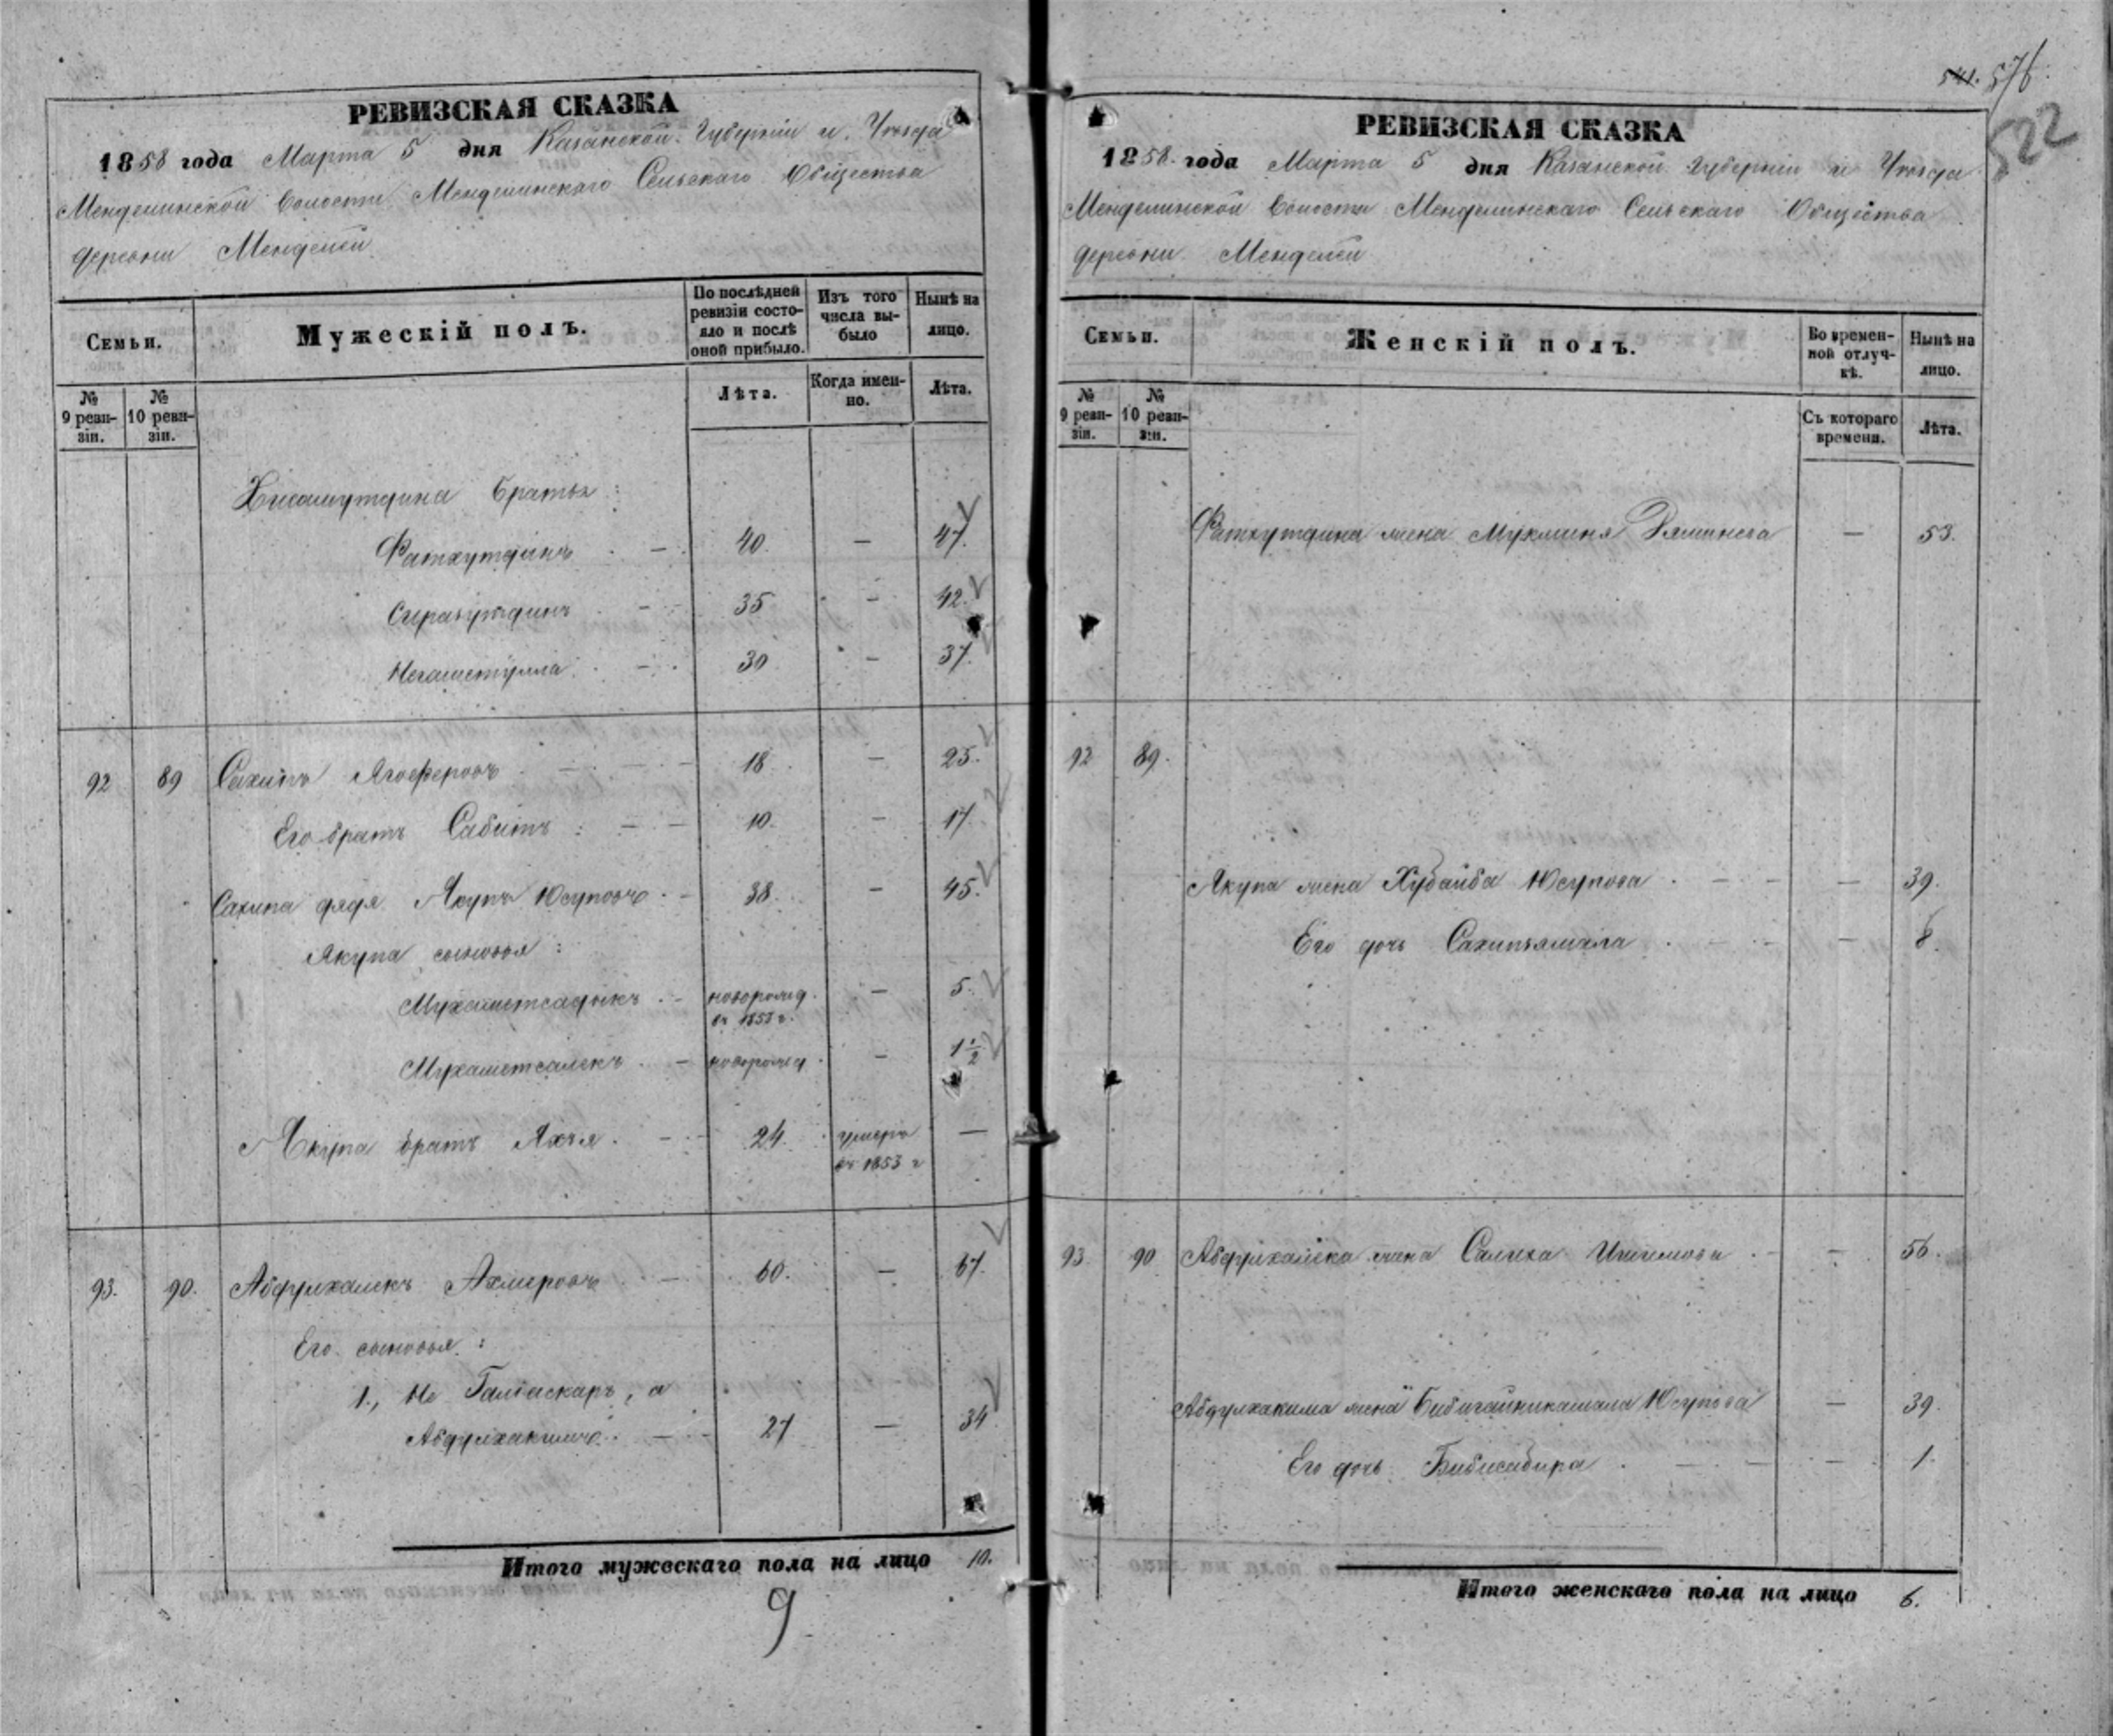 РЕВИЗСКАЯ СКАЗКА
1858 года Марта 5 дня Казанской Губернiи и Уѣзда
Менделинской Волости Менделинскаго Сельскаго Общества
деревни Менделей
Семьи.
Мужескiй полъ.
По послѣдней ревизiи состояло и послѣ оной прибыло.
Изъ того числа выбыло
Нынѣ на лицо.
№ 9 ревизiи.
№ 10 ревизiи.
Лѣта.
Когда именно.
Лѣта.
Хисамутдина братья:
Фатхутдинъ — 40. — 47.
Сиразутдинъ — 35 — 42.
Негаметулла — 30 — 37.
92 89 Сахипъ Ягоферовъ — 18 — 25.
Его братъ Сабитъ: — 10. — 17
Сахипа дядя Якупъ Юсуповъ — 38. — 45.
Якупа сыновья:
Мухаметсадыкъ — новорожд. — 5.
въ 1853 г.
Мухаметсалекъ — новорожд — 1 1/2
Якупа братъ Яхъя — 24. умеръ —
въ 1853 г
93. 90. Абдулхалекъ Ахмеровъ — 60. — 67.
Его сыновья:
1., Не Галiаскаръ, а
Абдулхакимъ — 27 — 34
Итого мужескаго пола на лицо 10.
9
541. 576
522
РЕВИЗСКАЯ СКАЗКА
1858 года Марта 5 дня Казанской Губернiи и Уѣзда
Менделинской Волости Менделинскаго Сельскаго Общества
деревни Менделей
Семьи.
Женскiй полъ.
Во временной отлучкѣ.
Нынѣ на лицо.
№ 9 ревизiи.
№ 10 ревизiи.
Съ котораго времени.
Лѣта.
Фатхутдина жена Мукминя — 53.
92 89.
Якупа жена Хубайба Юсупова — 39.
Его дочь Сахипъямала — 8.
93. 90 Абдулхалека жена Салиха — 56.
Абдулхакима жена Юсупова — 39.
Его дочь Бибисабира — 1.
Итого женскаго пола на лицо 6.